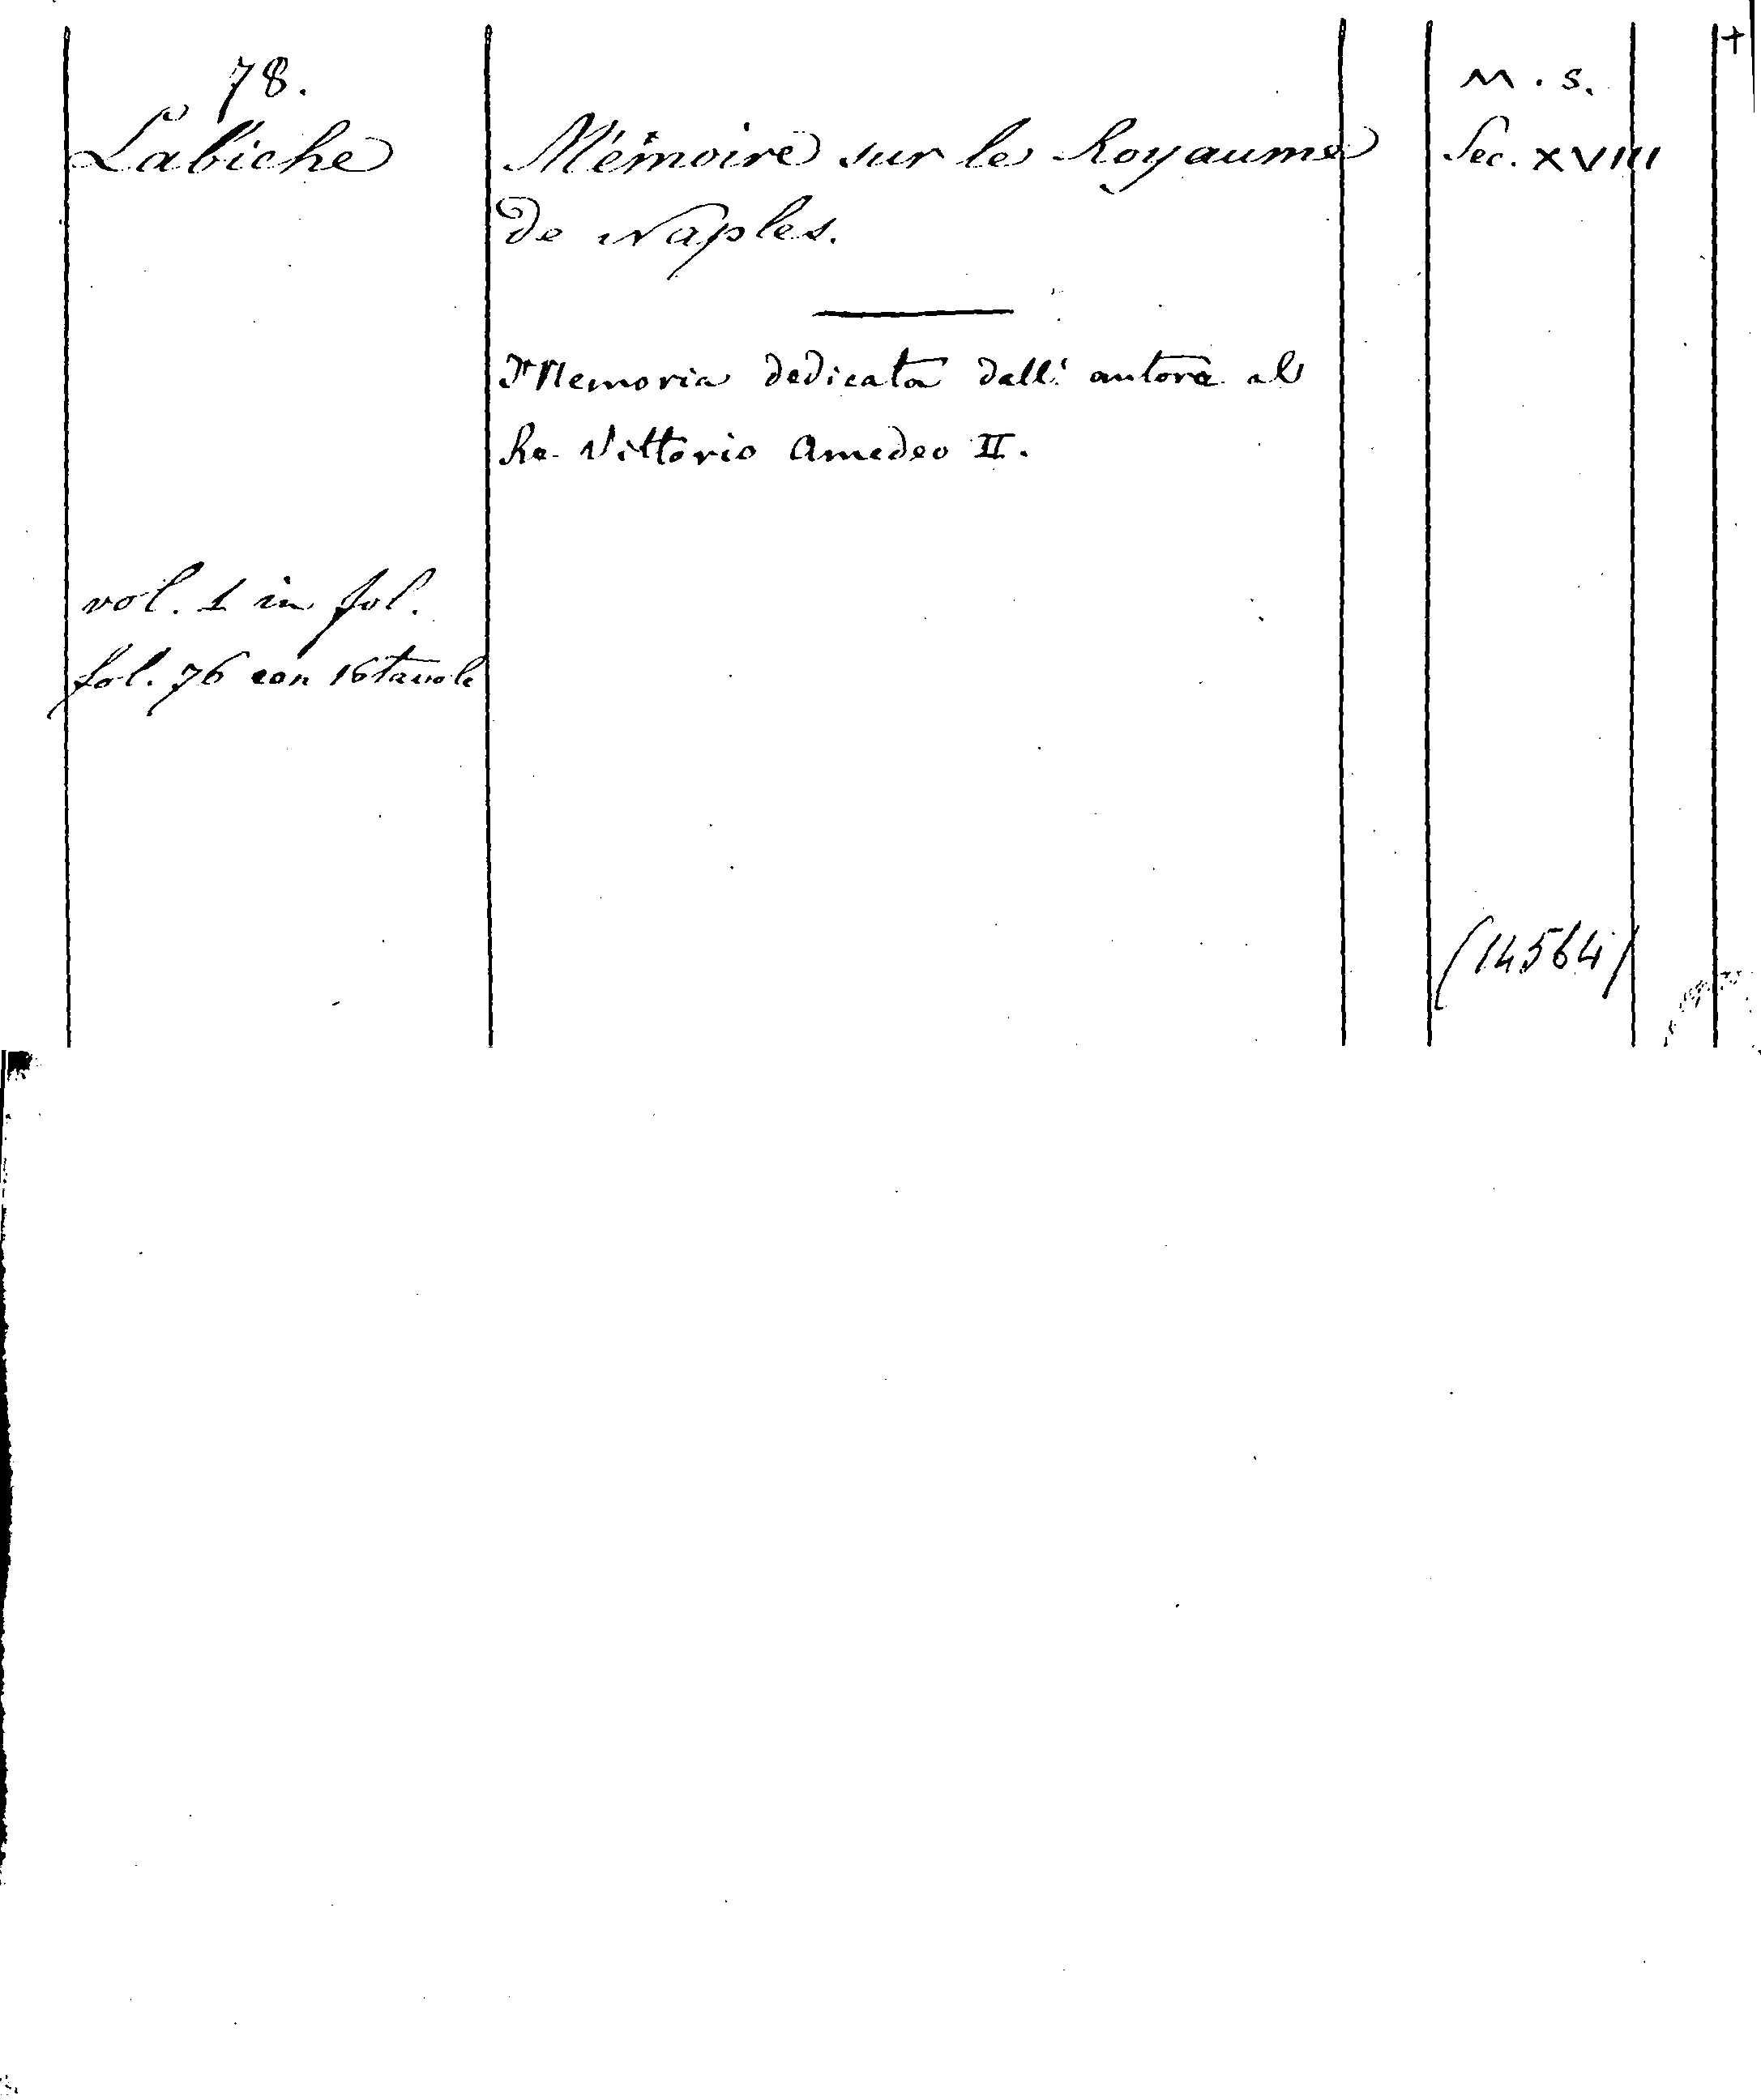 78.
Labiche
Mémoire sur le Royaume
de Naples.
Memoria dedicata dall' autore al
Re Vittorio Amedeo II.
vol. 1 in fol.
fol. 76 con 16 tavole
M. S.
Sec. XVIII
+
(14564)